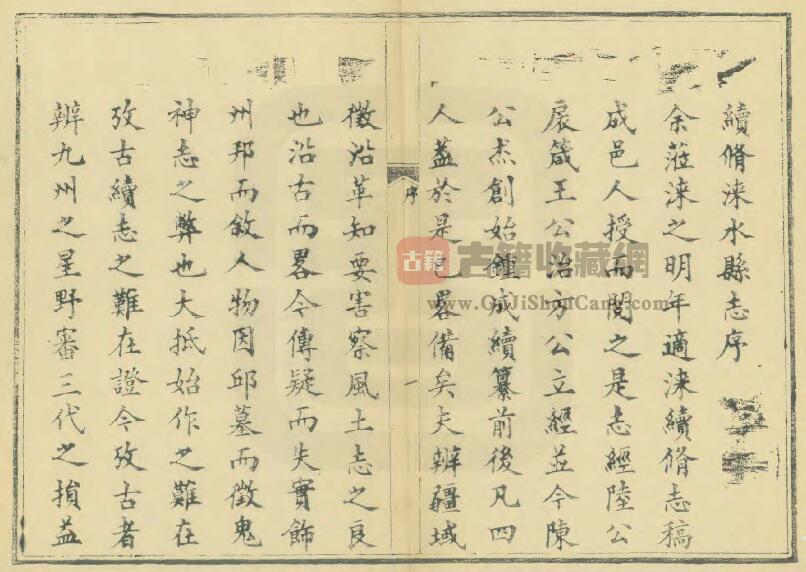 續脩淶水縣志序
余蒞淶之明年適淶續脩志稿
成邑人授而閱之是志經陸公
宸箴王公治方公立經並今陳
公杰創始鍾成續纂前後凡四
人葢於是已畧備矣夫辨疆域
序
一
徵沿革知要害察風土志之良
也沿古而畧今傳疑而失實飾
州邦而敘人物因邱墓而徵鬼
神志之弊也大抵始作之難在
攷古續志之難在證今攷古者
辨九州之星野審三代之損益
古籍
古籍收藏網
www.GuJiShouCang.com